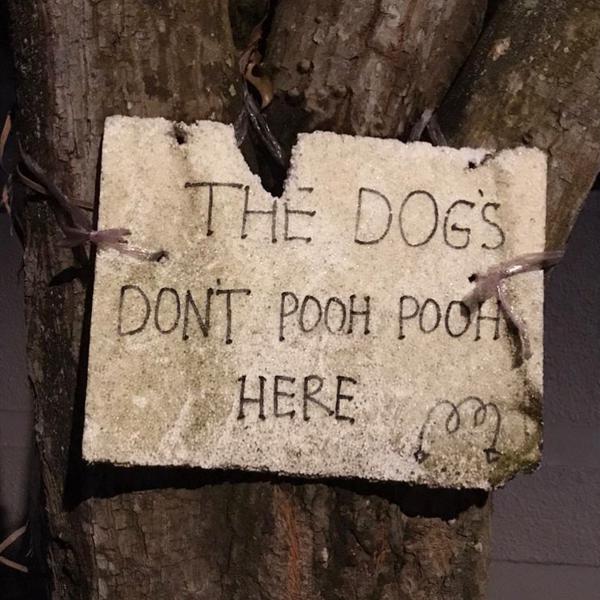 THE DOG'S
DON'T POOH POOH
HERE